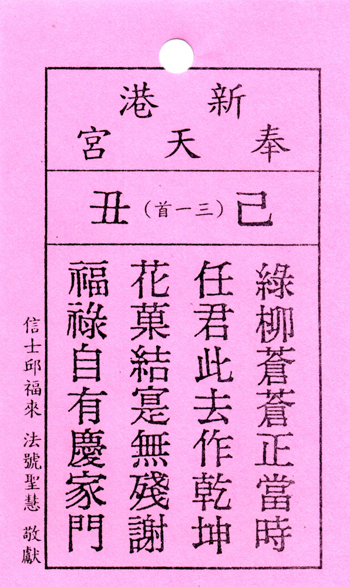 新港
奉天宮
己（三一首）丑
綠柳蒼蒼正當時
任君此去作乾坤
花菓結寔無殘謝
福祿自有慶家門
信士邱福來 法號聖慧 敬獻